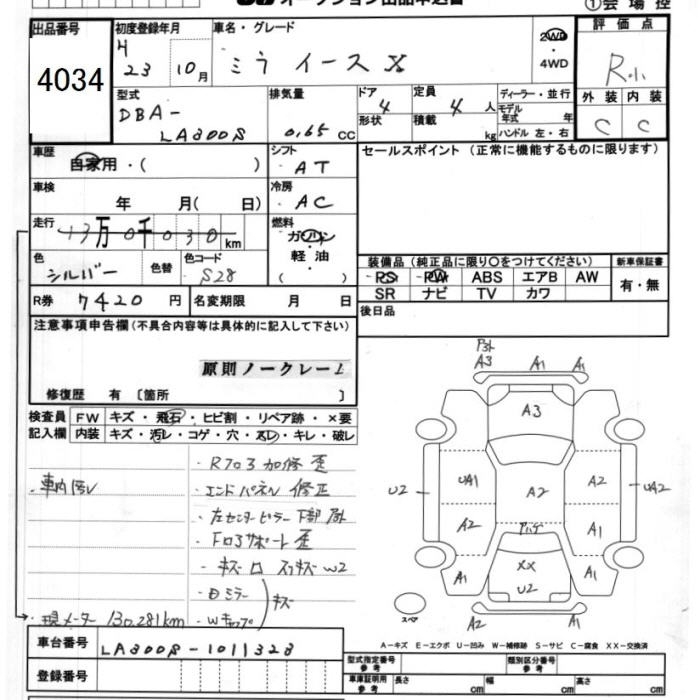 ①会場控
出品番号
4034
初度登録年月
H 23 10月
車名・グレード
ミラ イース X
2WD
・
4WD
評価点
R小
外装 内装
C C
型式
DBA-
LA300S
排気量
0.65 CC
ドア 4
形状
定員 4 人
積載 kg
ディーラー・並行
モデル年式 年
ハンドル 左・右
車歴
自家用・( )
シフト
AT
セールスポイント (正常に機能するものに限ります)
車検
年 月( 日)
冷房
AC
走行
13万0千030km
燃料
ガソリン
軽・油
( )
色
シルバー
色替
色コード
S28
装備品 (純正品に限り○をつけてください)
新車保証書
PS PW ABS エアB AW
SR ナビ TV カワ
有・無
R券 7420 円
名変期限 月 日
後日品
注意事項申告欄(不具合内容等は具体的に記入して下さい)
原則ノークレーム
修復歴 有 〔箇所 〕
検査員 FW キズ・飛石・ヒビ割・リペア跡・×要
記入欄 内装 キズ・汚レ・コゲ・穴・スレ・キレ・破レ
・車内汚レ
・Rフロア加修 歪
・エンドパネル 修正
・左センターピラー下部
・Fロアサポート 歪
・W2
・Dミラー
・Wキャップ
キズ
・現メーター 130,281km
A3 A1 A1
A3
UA1 A2 A2
U2 UA2
A2 A1
A1 XX A1
U2
A2 A1
スペア
A-キズ E-エクボ U-凹み W-補修跡 S-サビ C-腐食 XX-交換済
車台番号 LA300S-1011323
登録番号
型式指定番号 参考
類別区分番号 参考
車庫証明用 参考 長さ cm 幅 cm 高さ cm